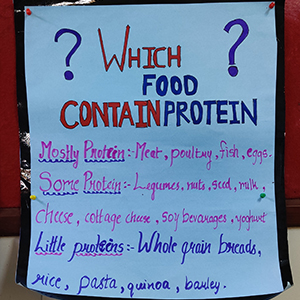 ? WHICH ?
FOOD
CONTAIN PROTEIN
Mostly Protein:- Meat, poultry, fish, eggs.
Some Protein:- Legumes, nuts, seed, milk,
cheese, cottage cheese, soy bevarages, yoghurt
Little proteins:- Whole grain breads,
rice, pasta, quinoa, barley.